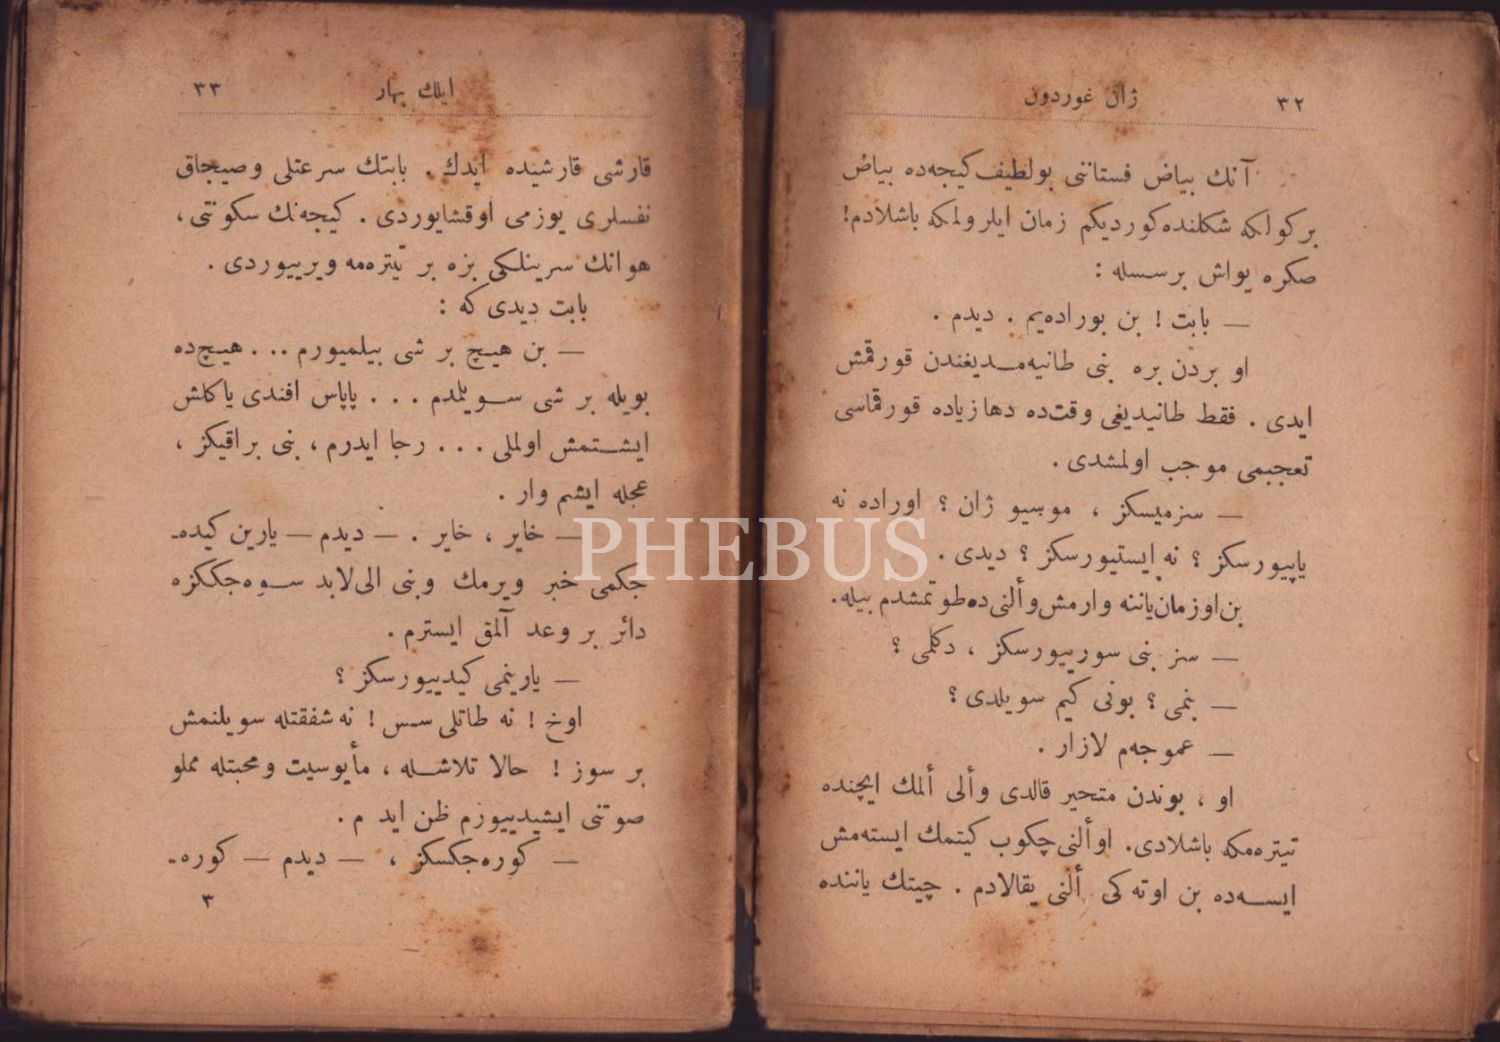 ٣٢
ژان غوردون
آنك بیاض فستاننی بولطیف كیجه‌ده بیاض
بر كولكه شكلنده كوردیكم زمان ایلرولمكه باشلادم!
صكره یواش برسسله :
— بابت ! بن بوراده‌یم . دیدم .
او بردن بره بنی طانیه‌مدیغندن قورقمش
ایدی . فقط طانیدیغی وقت‌ده دها زیاده قورقماسی
تعجبمی موجب اولمشدی .
— سزمیسكز ، موسیو ژان ؟ اوراده نه
یاپیورسكز ؟ نه ایستیورسكز ؟ دیدی .
بن اوزمان یاننه وارمش وألنی‌ده طوتمشدم بیله.
— سز بنی سورییورسكز ، دكلمی ؟
— بنمی ؟ بونی كیم سویلدی ؟
— عموجه‌م لازار .
او ، بوندن متحیر قالدی وألی ألمك ایچنده
تیتره‌مكه باشلادی. اوألنی چكوب كیتمك ایسته‌مش
ایسه‌ده بن اوته‌كی ألنی یقالادم . چیتك یاننده
ایلك بهار
٣٣
قارشی قارشیده ایدك . بابتك سرعتلی وصیجاق
نفسلری یوزمی اوقشایوردی . كیجه‌نك سكوتی ،
هوانك سرینلكی بزه بر تیتره‌مه ویرییوردی .
بابت دیدی كه :
— بن هیچ بر شی بیلمیورم ... هیچ‌ده
بویله بر شی سویلمدم ... پاپاس افندی یاكلش
ایشتمش اولملی ... رجا ایدرم ، بنی براقیكز ،
عجله ایشم وار .
— خایر ، خایر . — دیدم — یارین كیده-
جكمی خبر ویرمك وبنی الی‌لابد سوه‌جككزه
دائر بر وعد آلمق ایسترم .
— یارینمی كیدییورسكز ؟
اوخ ! نه طاتلی سس ! نه شفقتله سویلنمش
بر سوز ! حالا تلاشله ، مأیوسیت ومحبتله مملو
صوتنی ایشیدییورم ظن ایدم .
— كوره‌جكسكز ، — دیدم — كوره-
٣
PHEBUS